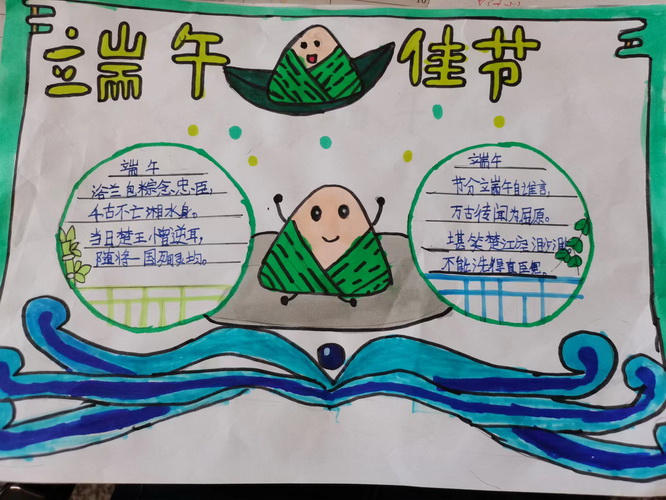 端午佳节
端午
浴兰包粽念忠臣,
千古不亡湘水身。
当日楚王憎逆耳,
随将一国殉灵均。
端午
节分端午自谁言,
万古传闻为屈原。
堪笑楚江空渺渺
不能洗得直臣冤。